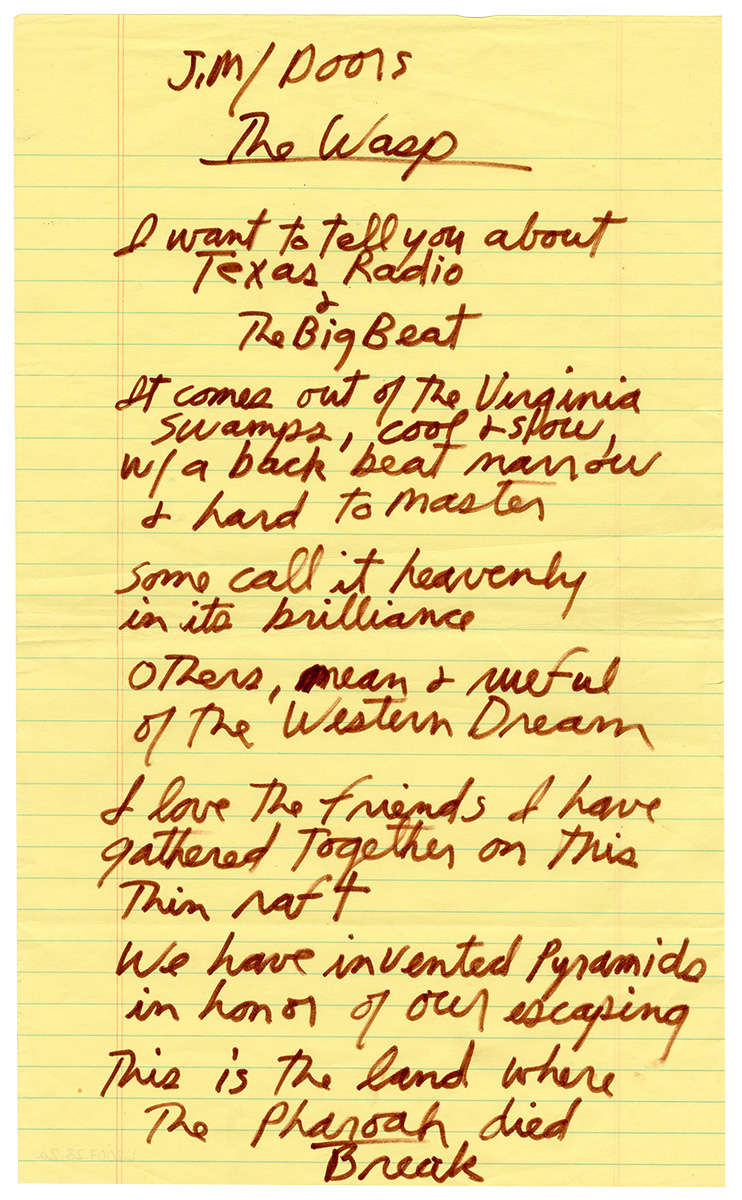 Jim/Doors
The Wasp
I want to tell you about
Texas Radio
&
The Big Beat
It comes out of the Virginia
swamps, cool & slow,
w/ a back beat narrow
& hard to master
some call it heavenly
in its brilliance
Others, mean & rueful
of the Western Dream
I love the friends I have
gathered Together on this
Thin raft
We have invented Pyramids
in honor of our escaping
This is the land where
The Pharoah died
Break